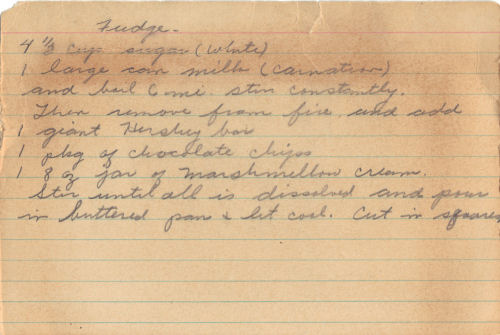 Fudge.
4 1/2 cup sugar (White)
1 large can milk (Carnation)
and boil 6 mi. stir constantly.
Then remove from fire and add
1 giant Hershey bar
1 pkg of chocolate chips
1 8 oz jar of marshmellow cream.
Stir until all is dissolved and pour
in buttered pan & let cool. Cut in squares